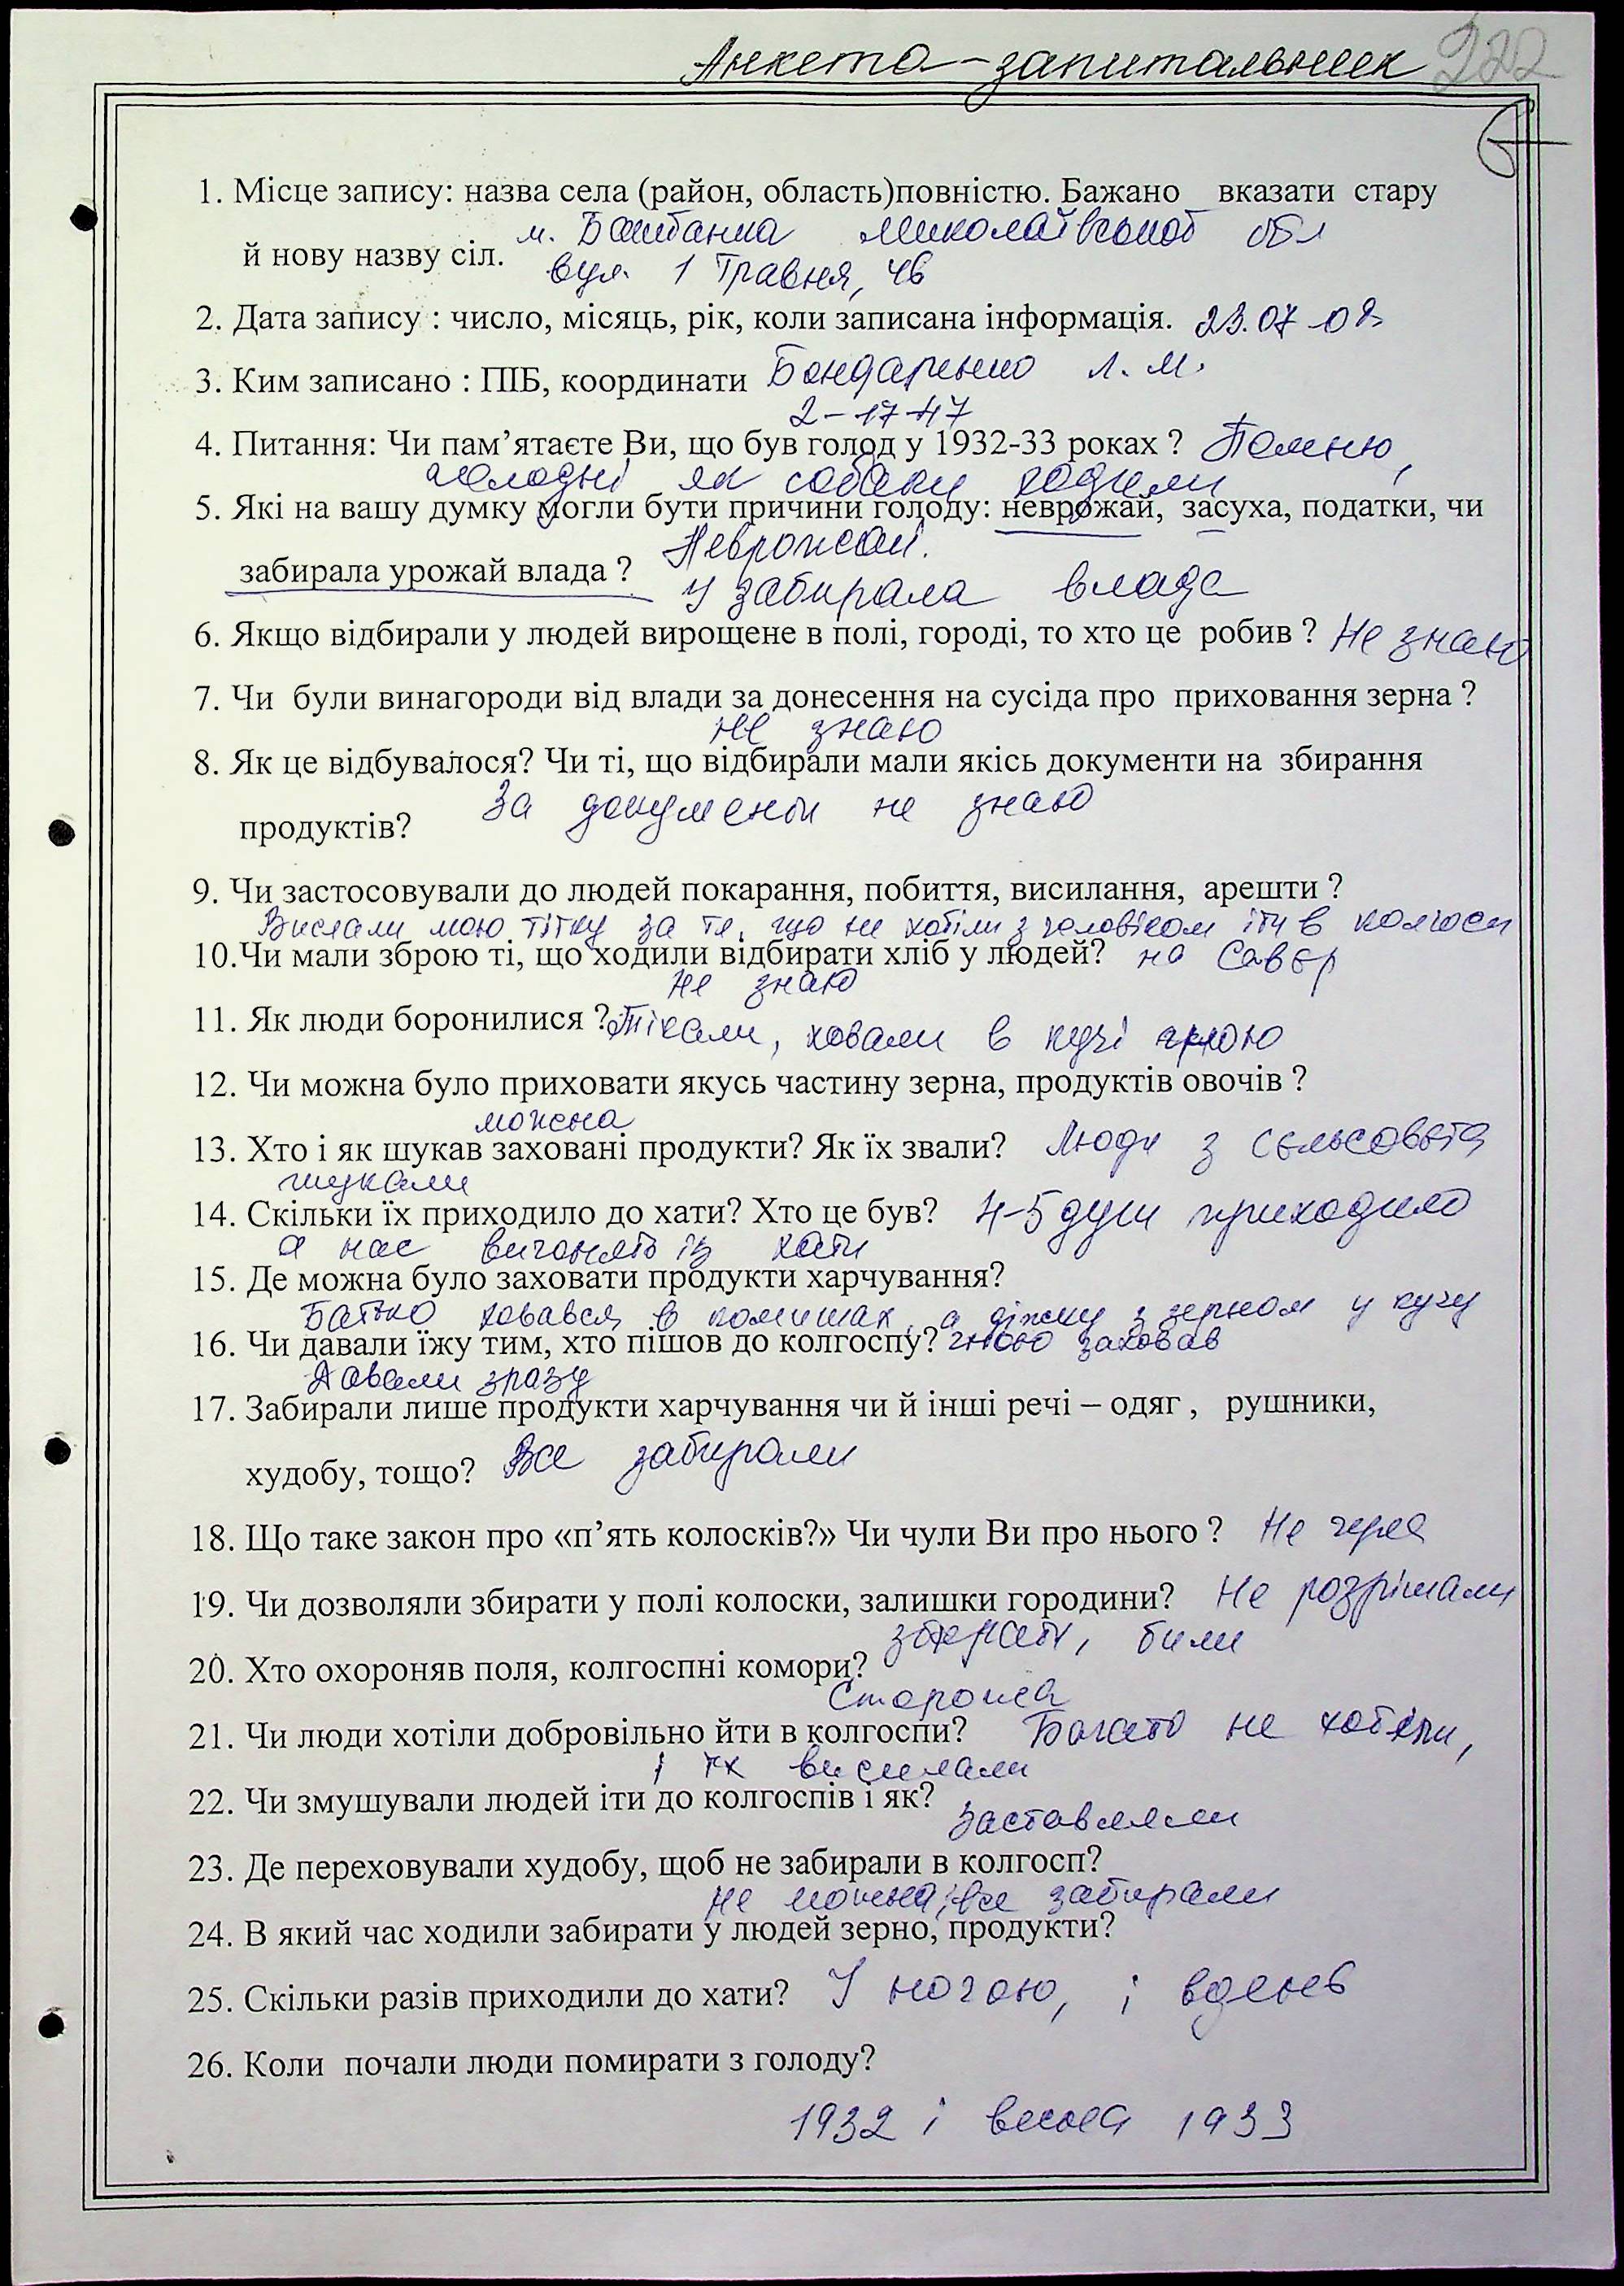 Анкета-запитальник 222
1. Місце запису: назва села (район, область)повністю. Бажано вказати стару
м. Баштанка Миколаївської обл
й нову назву сіл.
вул. 1 Травня, 46
2. Дата запису : число, місяць, рік, коли записана інформація. 23.07.08
3. Ким записано : ПІБ, координати Бондаренко Л. М.
2-17-47
4. Питання: Чи пам’ятаєте Ви, що був голод у 1932-33 роках ? Помню,
голодні як собаки ходили
5. Які на вашу думку могли бути причини голоду: неврожай, засуха, податки, чи
Неврожай.
забирала урожай влада ?
У забирала влада
6. Якщо відбирали у людей вирощене в полі, городі, то хто це робив ? Не знаю
7. Чи були винагороди від влади за донесення на сусіда про приховання зерна ?
не знаю
8. Як це відбувалося? Чи ті, що відбирали мали якісь документи на збирання
За документи не знаю
продуктів?
9. Чи застосовували до людей покарання, побиття, висилання, арешти ?
Вислали мою тітку за те, що не хотіли з чоловіком іти в колгосп
10.Чи мали зброю ті, що ходили відбирати хліб у людей? на Сєвєр
не знаю
11. Як люди боронилися ? Тікали, ховали в кучі гною
12. Чи можна було приховати якусь частину зерна, продуктів овочів ?
можна
13. Хто і як шукав заховані продукти? Як їх звали? Люди з сєльсовєта
шукали
14. Скільки їх приходило до хати? Хто це був? 4-5 душ приходило
а нас виганяли із хати
15. Де можна було заховати продукти харчування?
Батько ховався в комишах, а діжку з зерном у кучу
16. Чи давали їжу тим, хто пішов до колгоспу? гною заховав
Давали зразу
17. Забирали лише продукти харчування чи й інші речі – одяг , рушники,
худобу, тощо? Все забирали
18. Що таке закон про «п’ять колосків?» Чи чули Ви про нього ? Не чула
19. Чи дозволяли збирати у полі колоски, залишки городини? Не розрішали
збирати, били
20. Хто охороняв поля, колгоспні комори?
Сторожа
21. Чи люди хотіли добровільно йти в колгоспи? Багато не хотіли,
і їх висилали
22. Чи змушували людей іти до колгоспів і як?
Заставляли
23. Де переховували худобу, щоб не забирали в колгосп?
не можна, все забирали
24. В який час ходили забирати у людей зерно, продукти?
25. Скільки разів приходили до хати? У ночою, і вдень
26. Коли почали люди помирати з голоду?
1932 і весна 1933